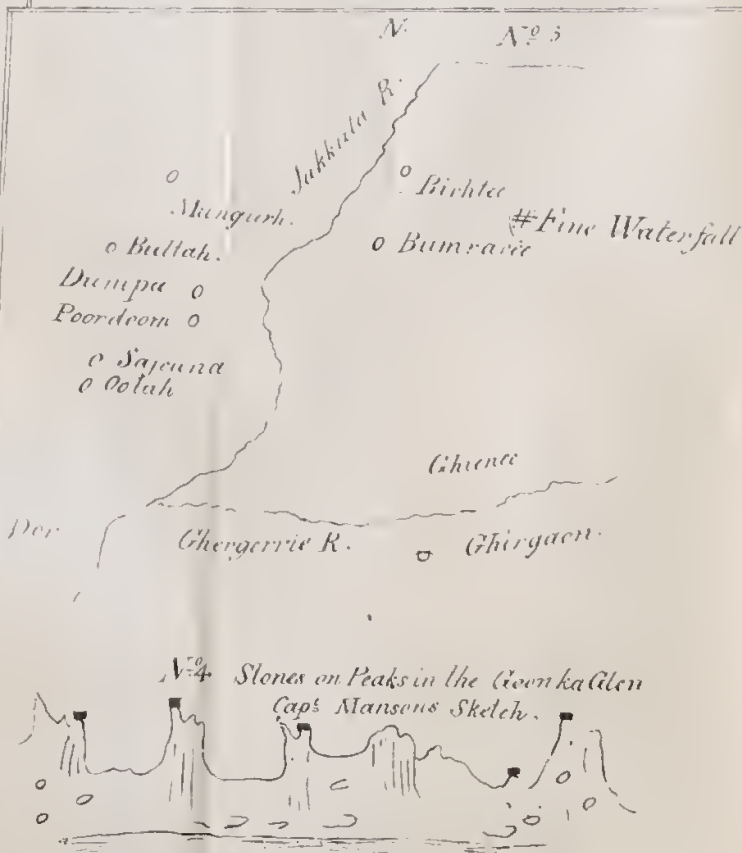 N.
No. 3
Jakkula R.
Bichtee
Mungurh.
#Fine Waterfall
Bullah.
Bumrarie
Dumpa
Poordoom
Sajeuna
Oolah
Ghienee
Dor
Ghergerrie R.
Ghirgaon.
No. 4. Stones on Peaks in the Goonka Glen
Capt. Mansons Sketch.